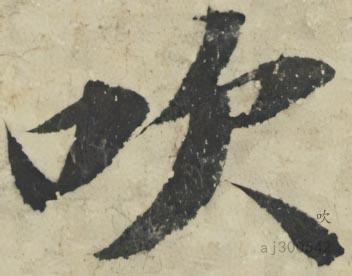 吹
吹
aj300542